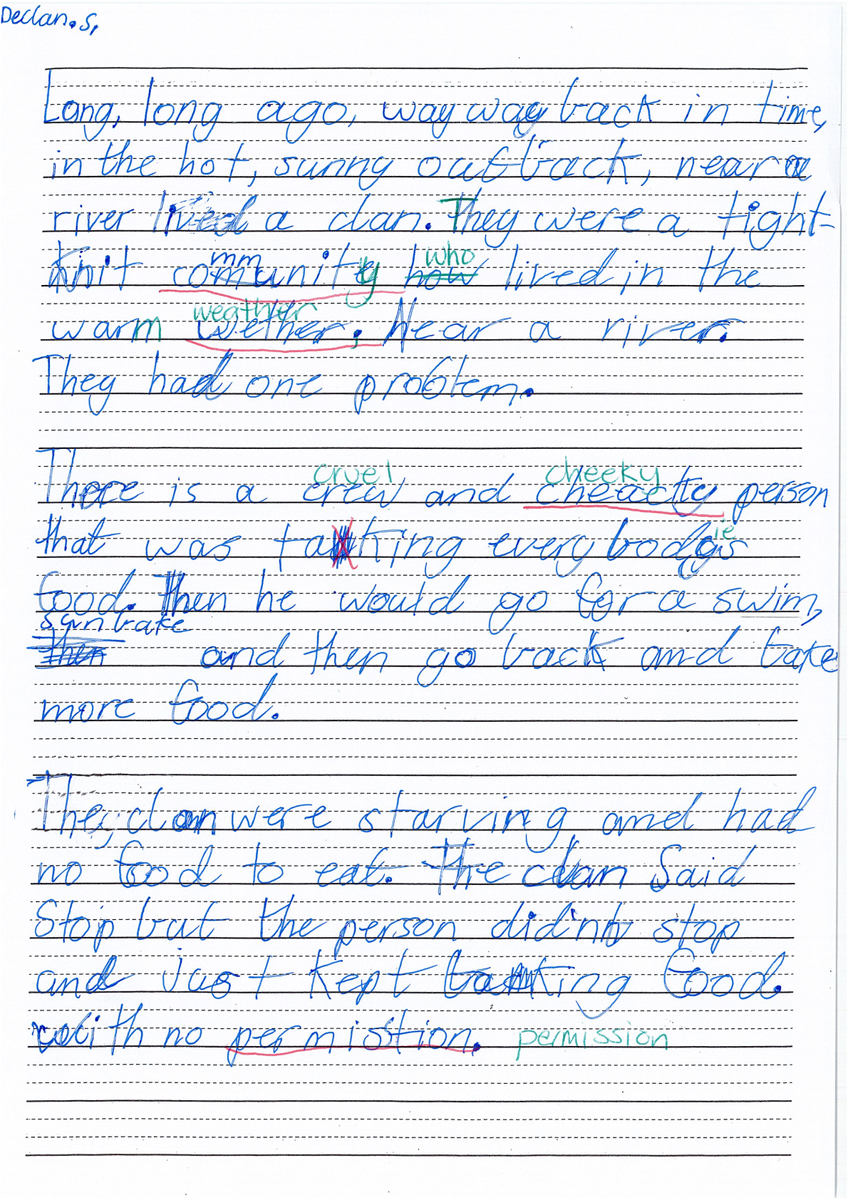 Declan.S,
Long, long ago, way way back in time,
in the hot, sunny outback, near a
river lived a clan. They were a tight-
mm who
knit comunity how lived in the
weather
warm wether. Near a river.
They had one problem.
cruel cheeky
There is a crew and cheacky person
that was taking everybodys
ie
food. Then he would go for a swim,
sun bake
then and then go back and take
more food.
They clan were starving and had
no food to eat. The clan Said
Stop but the person didn't stop
and just kept taking food.
with no permisttion. permission